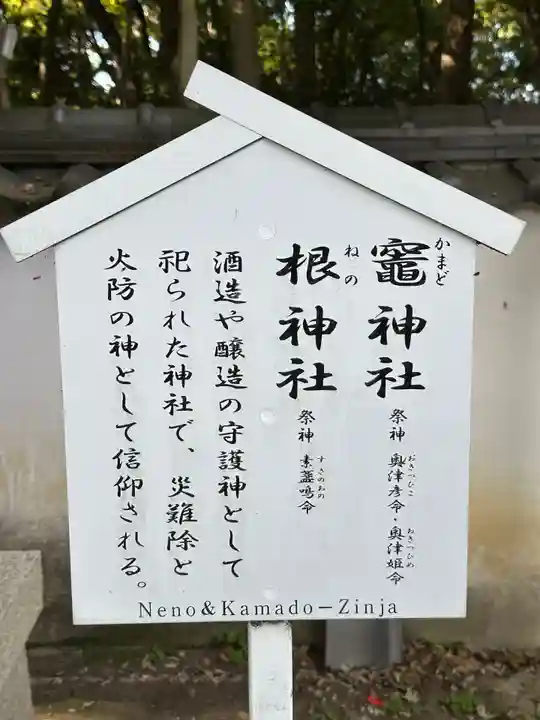 竈神社 祭神 奥津彦命・奥津姫命
かまど おきつひこ おきつひめ
根神社 祭神 素盞嗚命
ねの すさのおの
酒造や醸造の守護神として
祀られた神社で、災難除と
火防の神として信仰される。
Neno&Kamado－Zinja